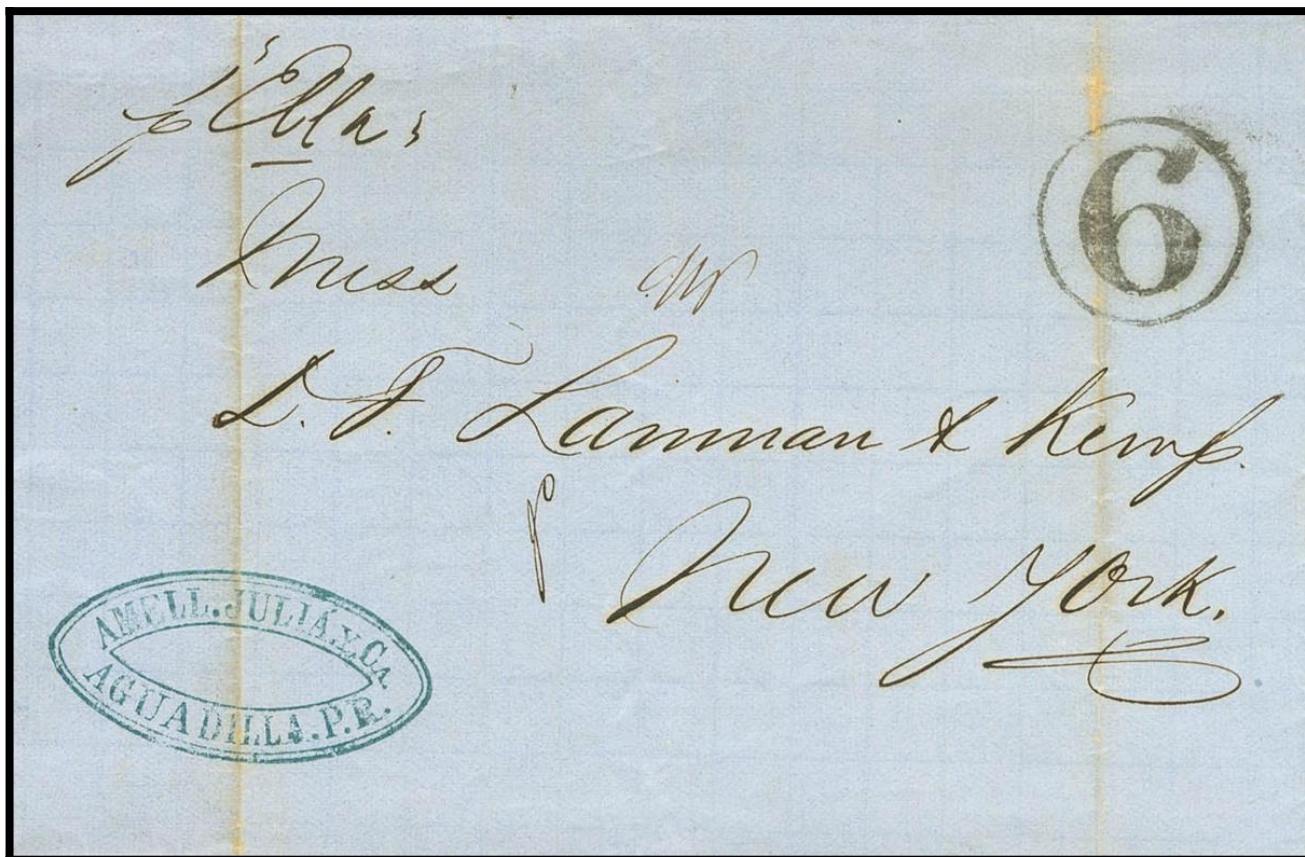 p "Ella"
6
Mess
D. T. Lanman & Kemp.
New York.
AMELL. JULIÁ. Y. CA.
AGUADILLA. P. R.